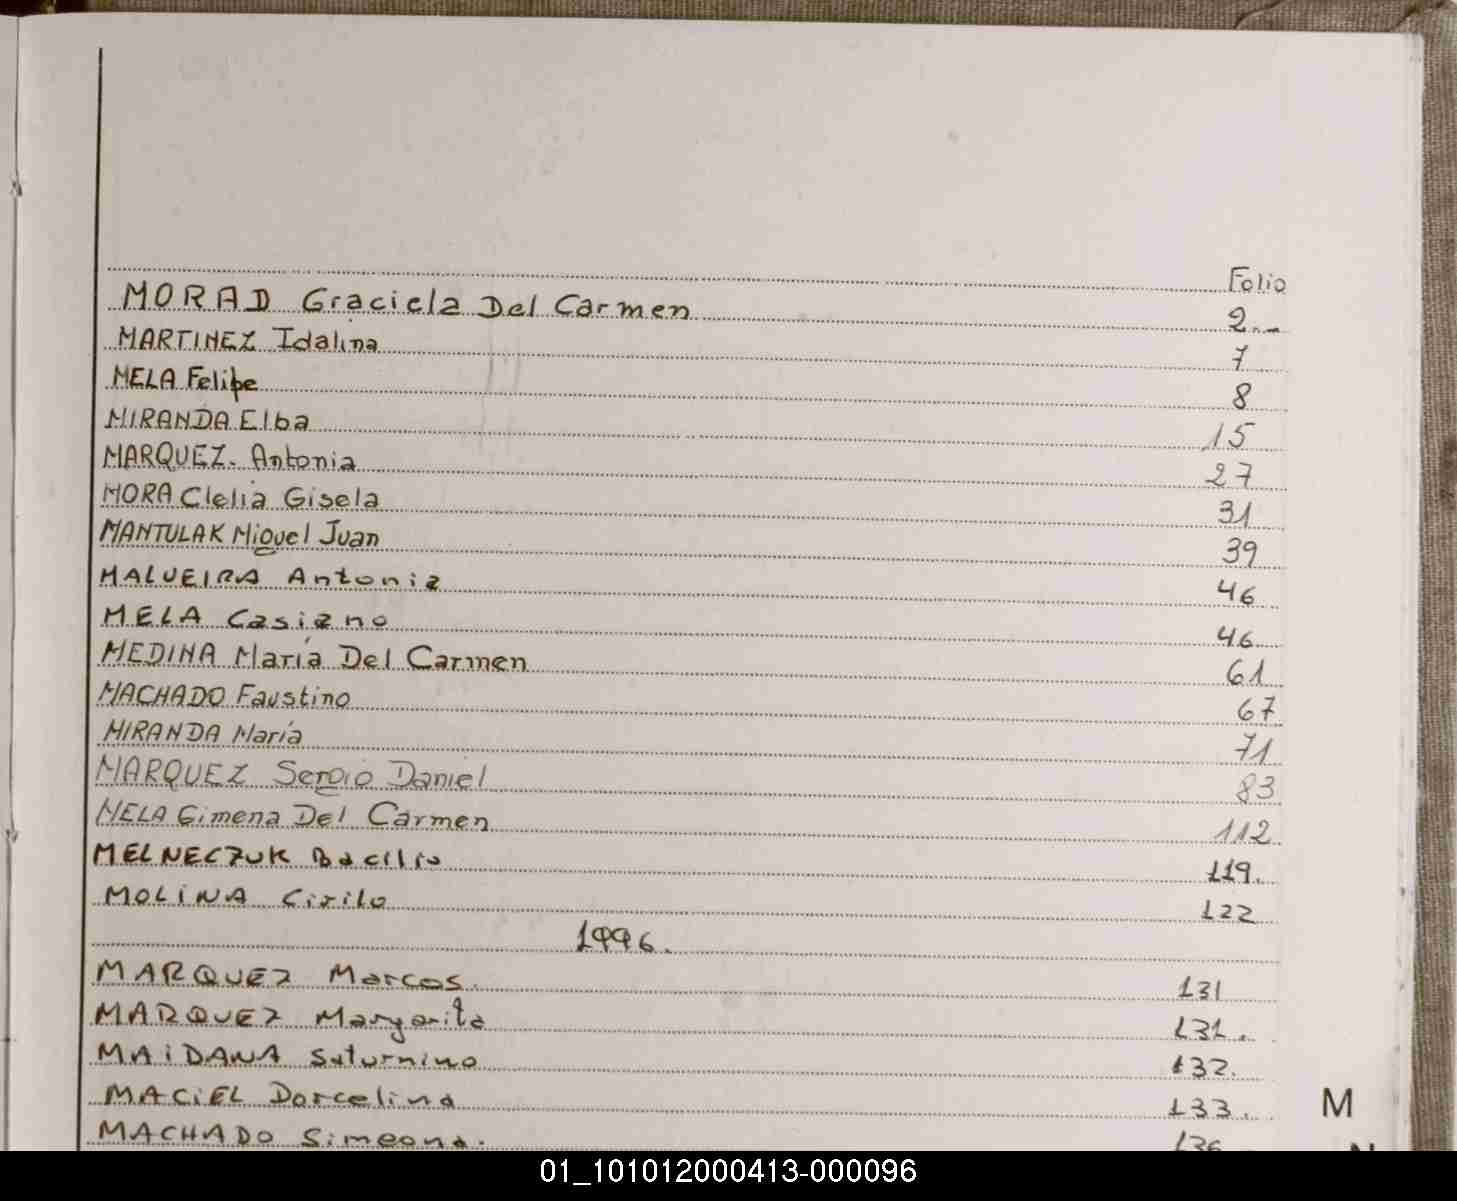 Folio
MORAD Graciela Del Carmen 2.-
MARTINEZ Idalina 7
MELA Felipe 8
MIRANDA Elba 15
MARQUEZ. Antonia 27
MORA Clelia Gisela 31
MANTULAK Miguel Juan 39
MALVEIRA Antonia 46
MELA Casiano 46
MEDINA María Del Carmen 61
MACHADO Faustino 67
MIRANDA María 71
MARQUEZ Sergio Daniel 83
MELA Gimena Del Carmen 112
MELNECZUK Bacilio 119.
MOLINA Cirilo 122
1996.
MARQUEZ Marcos. 131
MARQUEZ Margarita 131.
MAIDANA Saturnino 132.
MACIEL Dorcelina 133.
M
MACHADO Simeona. 136
01_101012000413-000096